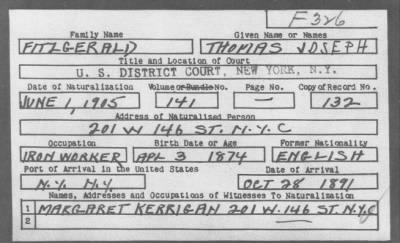 F326
Family Name Given Name or Names
FITZGERALD THOMAS JOSEPH
Title and Location of Court
U. S. DISTRICT COURT, NEW YORK, N.Y.
Date of Naturalization Volume or Bundle No. Page No. Copy of Record No.
JUNE 1, 1905 141 — 132
Address of Naturalized Person
201 W 146 ST. N.Y.C
Occupation Birth Date or Age Former Nationality
IRON WORKER APL 3 1874 ENGLISH
Port of Arrival in the United States Date of Arrival
N.Y. N.Y. OCT 28 1891
Names, Addresses and Occupations of Witnesses To Naturalization
1 MARGARET KERRIGAN 201 W. 146 ST. N.Y.C
2